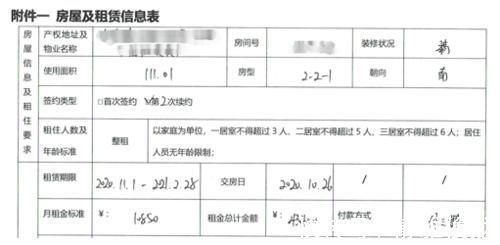 附件一 房屋及租赁信息表
房屋信息及租住要求
产权地址及物业名称 房间号 装修状况
使用面积 111.01 房型 2-2-1 朝向 南
签约类型 □首次签约 第2次续约
租住人数及年龄标准 整租 以家庭为单位，一居室不得超过 3 人、二居室不得超过 5 人、三居室不得超过 6 人；居住人员无年龄限制；
租赁期限 2020.11.1 - 2021.2.28 交房日 2020.10.26 / /
月租金标准 ¥： 10850 租金总计金额 ¥： 付款方式